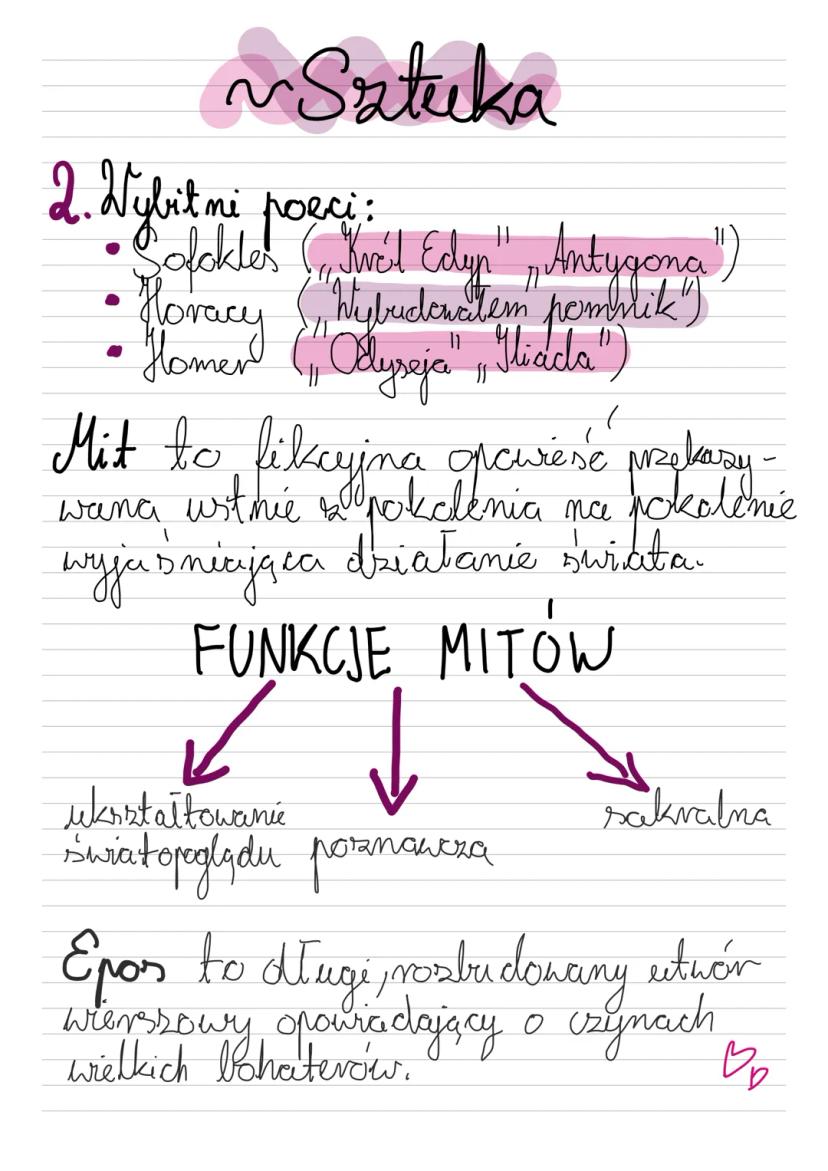 ~Sztuka
2. Wybitni poeci:
• Sofokles („Król Edyp" „Antygona")
• Horacy („Wybudowałem pomnik")
• Homer („Odyseja" „Iliada")
Mit to fikcyjna opowieść przekazy-
wana ustnie z pokolenia na pokolenie
wyjaśniająca działanie świata.
FUNKCJE MITÓW
ukształtowanie
światopoglądu
poznawcza
sakralna
Epos to długi, rozbudowany utwór
wierszowy opowiadający o czynach
wielkich bohaterów.